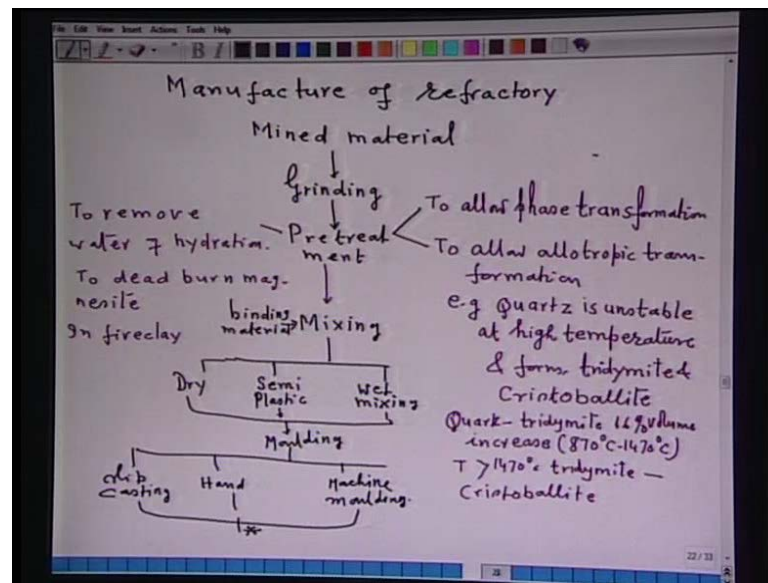 File Edit View Insert Actions Tools Help
B I
Manufacture of refractory
Mined material
Grinding
Pretreat
ment
To remove
water of hydration.
To dead burn mag-
nesite
In fireclay
To allow phase transformation
To allow allotropic tran-
formation
e.g Quartz is unstable
at high temperature
& form tridymite &
Cristoballite
Quark - tridymite 16% volume
increase (870°C-1470°C)
T > 1470°C tridymite —
Cristoballite
binding
material
Mixing
Dry
Semi
Plastic
Wet
mixing
Moulding
slip
casting
Hand
Machine
moulding.
22/33